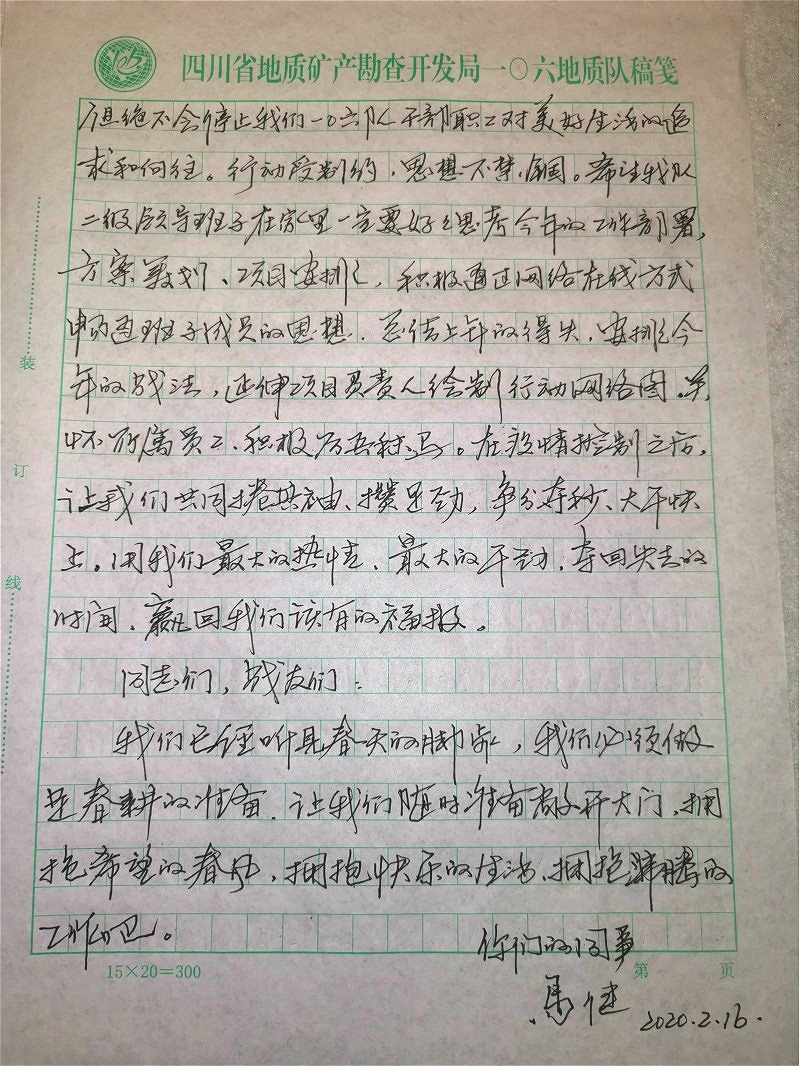 106
四川省地质矿产勘查开发局一〇六地质队稿笺
但绝不会停止我们一0六队干部职工对美好生活的追
求和向往。行动受制约，思想不禁锢。希望我队
二级领导班子在家里一定要好好思考今年的工作部署，
方案筹划、项目安排，积极通过网络在线方式
沟通班子成员的思想，总结上年的得失，安排今
年的战法，延伸项目负责人绘制行动网络图，关
怀所属员工，积极厉兵秣马。在疫情控制之后，
让我们共同捲其袖、攒足劲，争分夺秒、大干快
上。用我们最大的热情、最大的干劲，夺回失去的
时间，赢回我们该有的福报。
同志们，战友们：
我们已经听见春天的脚步，我们必须做
足春耕的准备，让我们随时准备敞开大门，拥
抱希望的春风，拥抱快乐的生活、拥抱沸腾的
工作吧。
你们的同事
马健
2020.2.16.
装
订
线
15×20=300
第 页